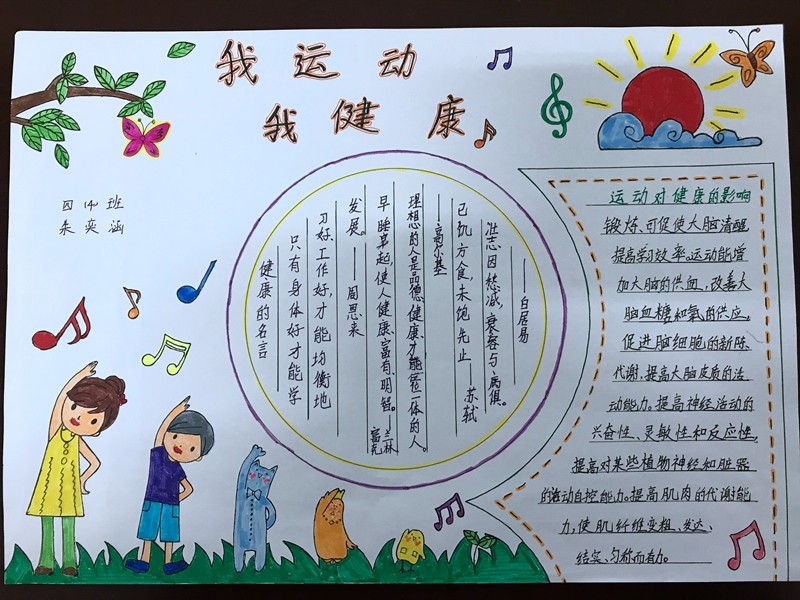 我运动
我健康
四(4)班
朱奕涵
健康的名言
只有身体好才能学
习好、工作好,才能均衡地
发展。——周恩来
早睡早起,使人健康、富有、明智。——富兰克林
理想的人是品德、健康、才能三位一体的人。
——高尔基
已饥方食,未饱先止——苏轼
壮志因愁减,衰容与病俱。
——白居易
运动对健康的影响
锻炼、可促使大脑清醒
提高学习效率。运动能增
加大脑的供血,改善大
脑血糖和氧的供应,
促进脑细胞的新陈
代谢,提高大脑皮质的活
动能力。提高神经活动的
兴奋性、灵敏性和反应性,
提高对某些植物神经和脏器
的活动自控能力。提高肌肉的代谢能
力,使肌纤维变粗、发达、
结实、匀称而有力。